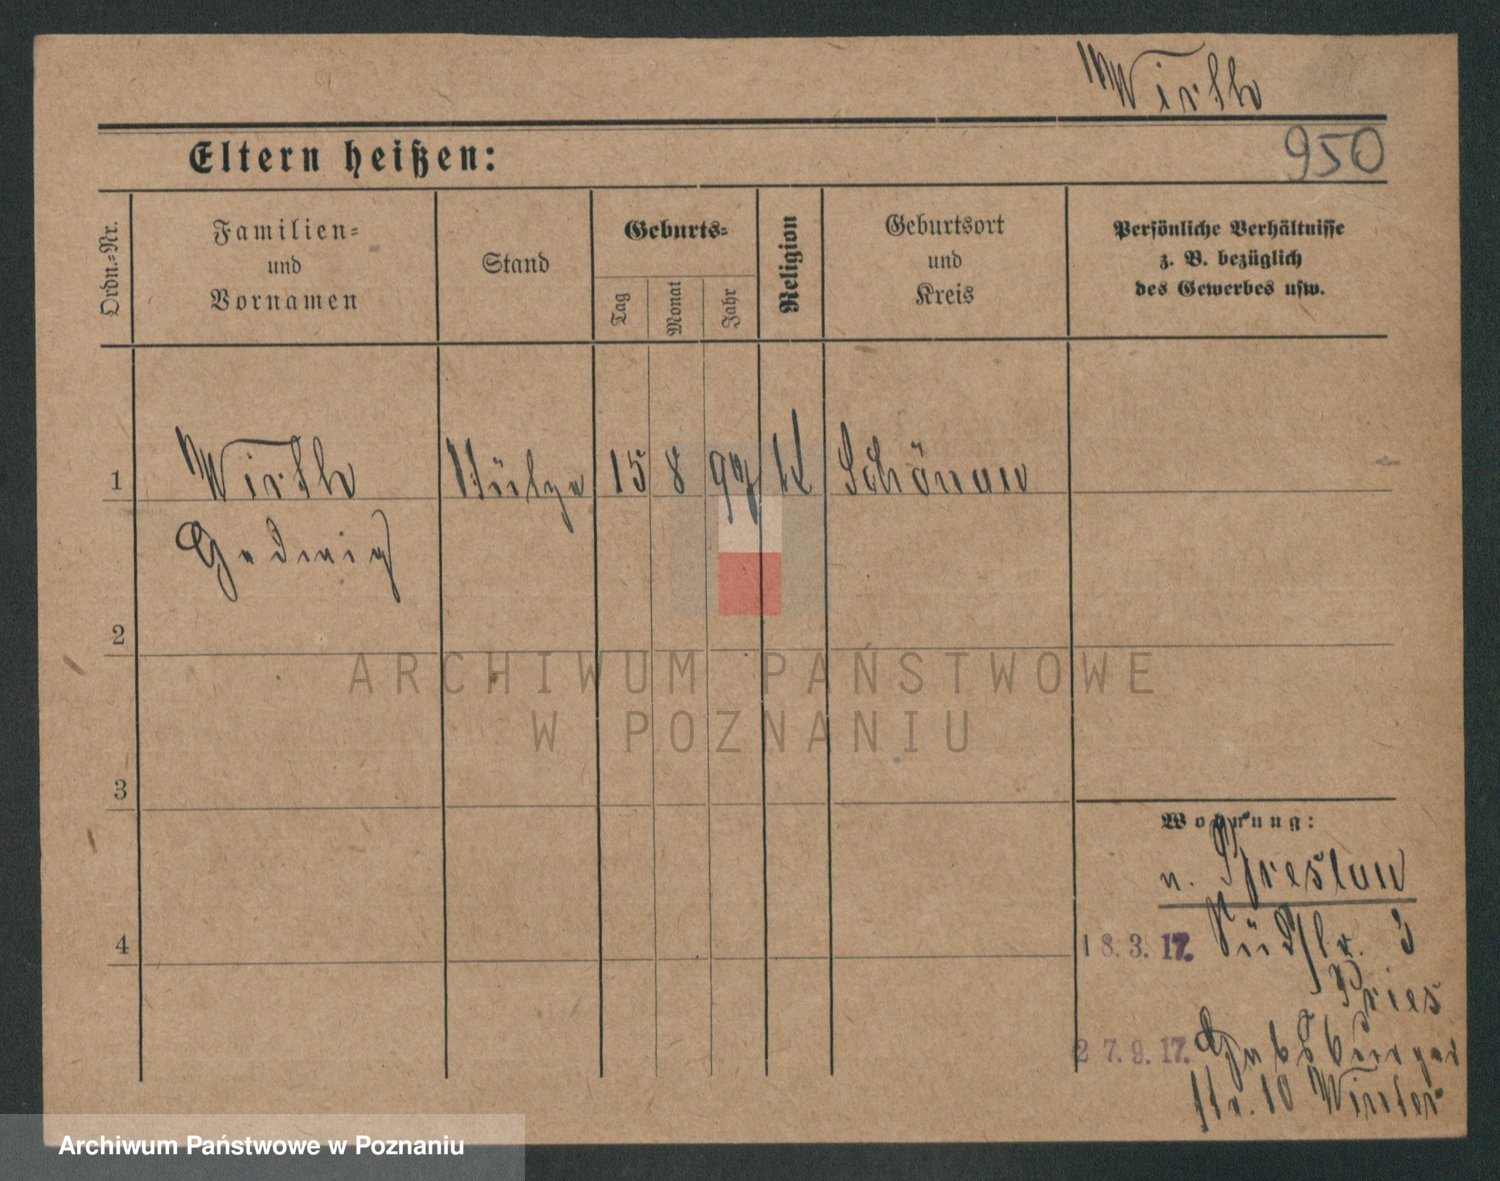 Wirth
950
Eltern heißen:
Ordn.-Nr.
Familien-
und
Vornamen
Stand
Geburts-
Tag
Monat
Jahr
Religion
Geburtsort
und
Kreis
Persönliche Verhältnisse
z. B. bezüglich
des Gewerbes usw.
1 Wirth 15 8 97 K Schönau
Hedwig
2
ARCHIWUM PAŃSTWOWE
W POZNANIU
3
Wohnung:
v. Breslau
4
18.3.17. Südstr. 3
Pries
27.9.17. Habsburger
str. 10 Winter
Archiwum Państwowe w Poznaniu